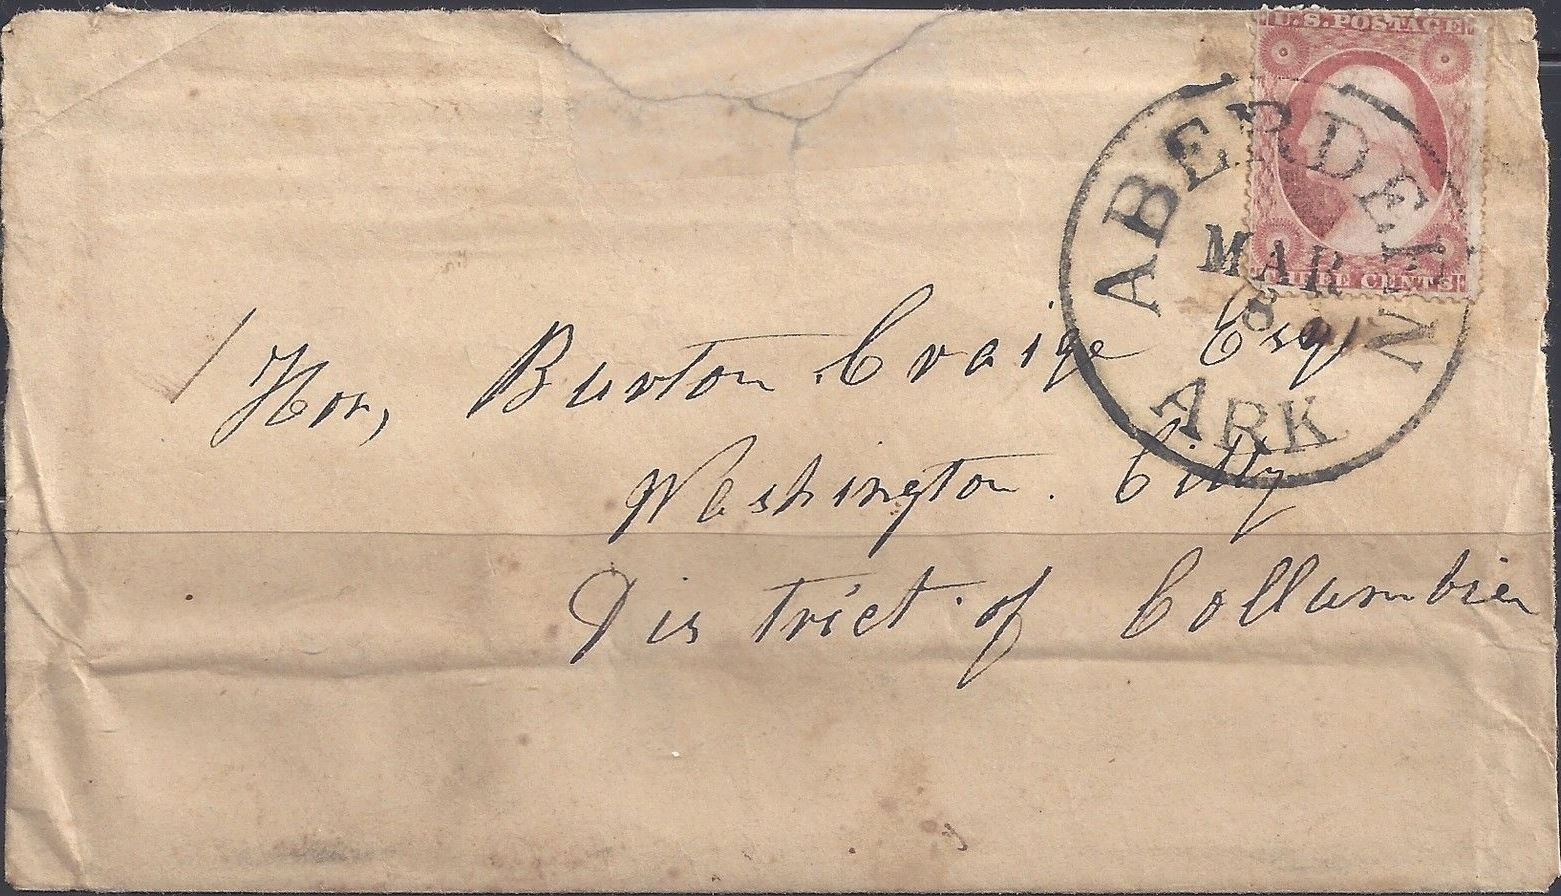 U.S. POSTAGE
THREE CENTS
ABERDEEN
MAR
8
ARK
Hon, Burton Craige Esq
Washington. Citty
District of Collumbia